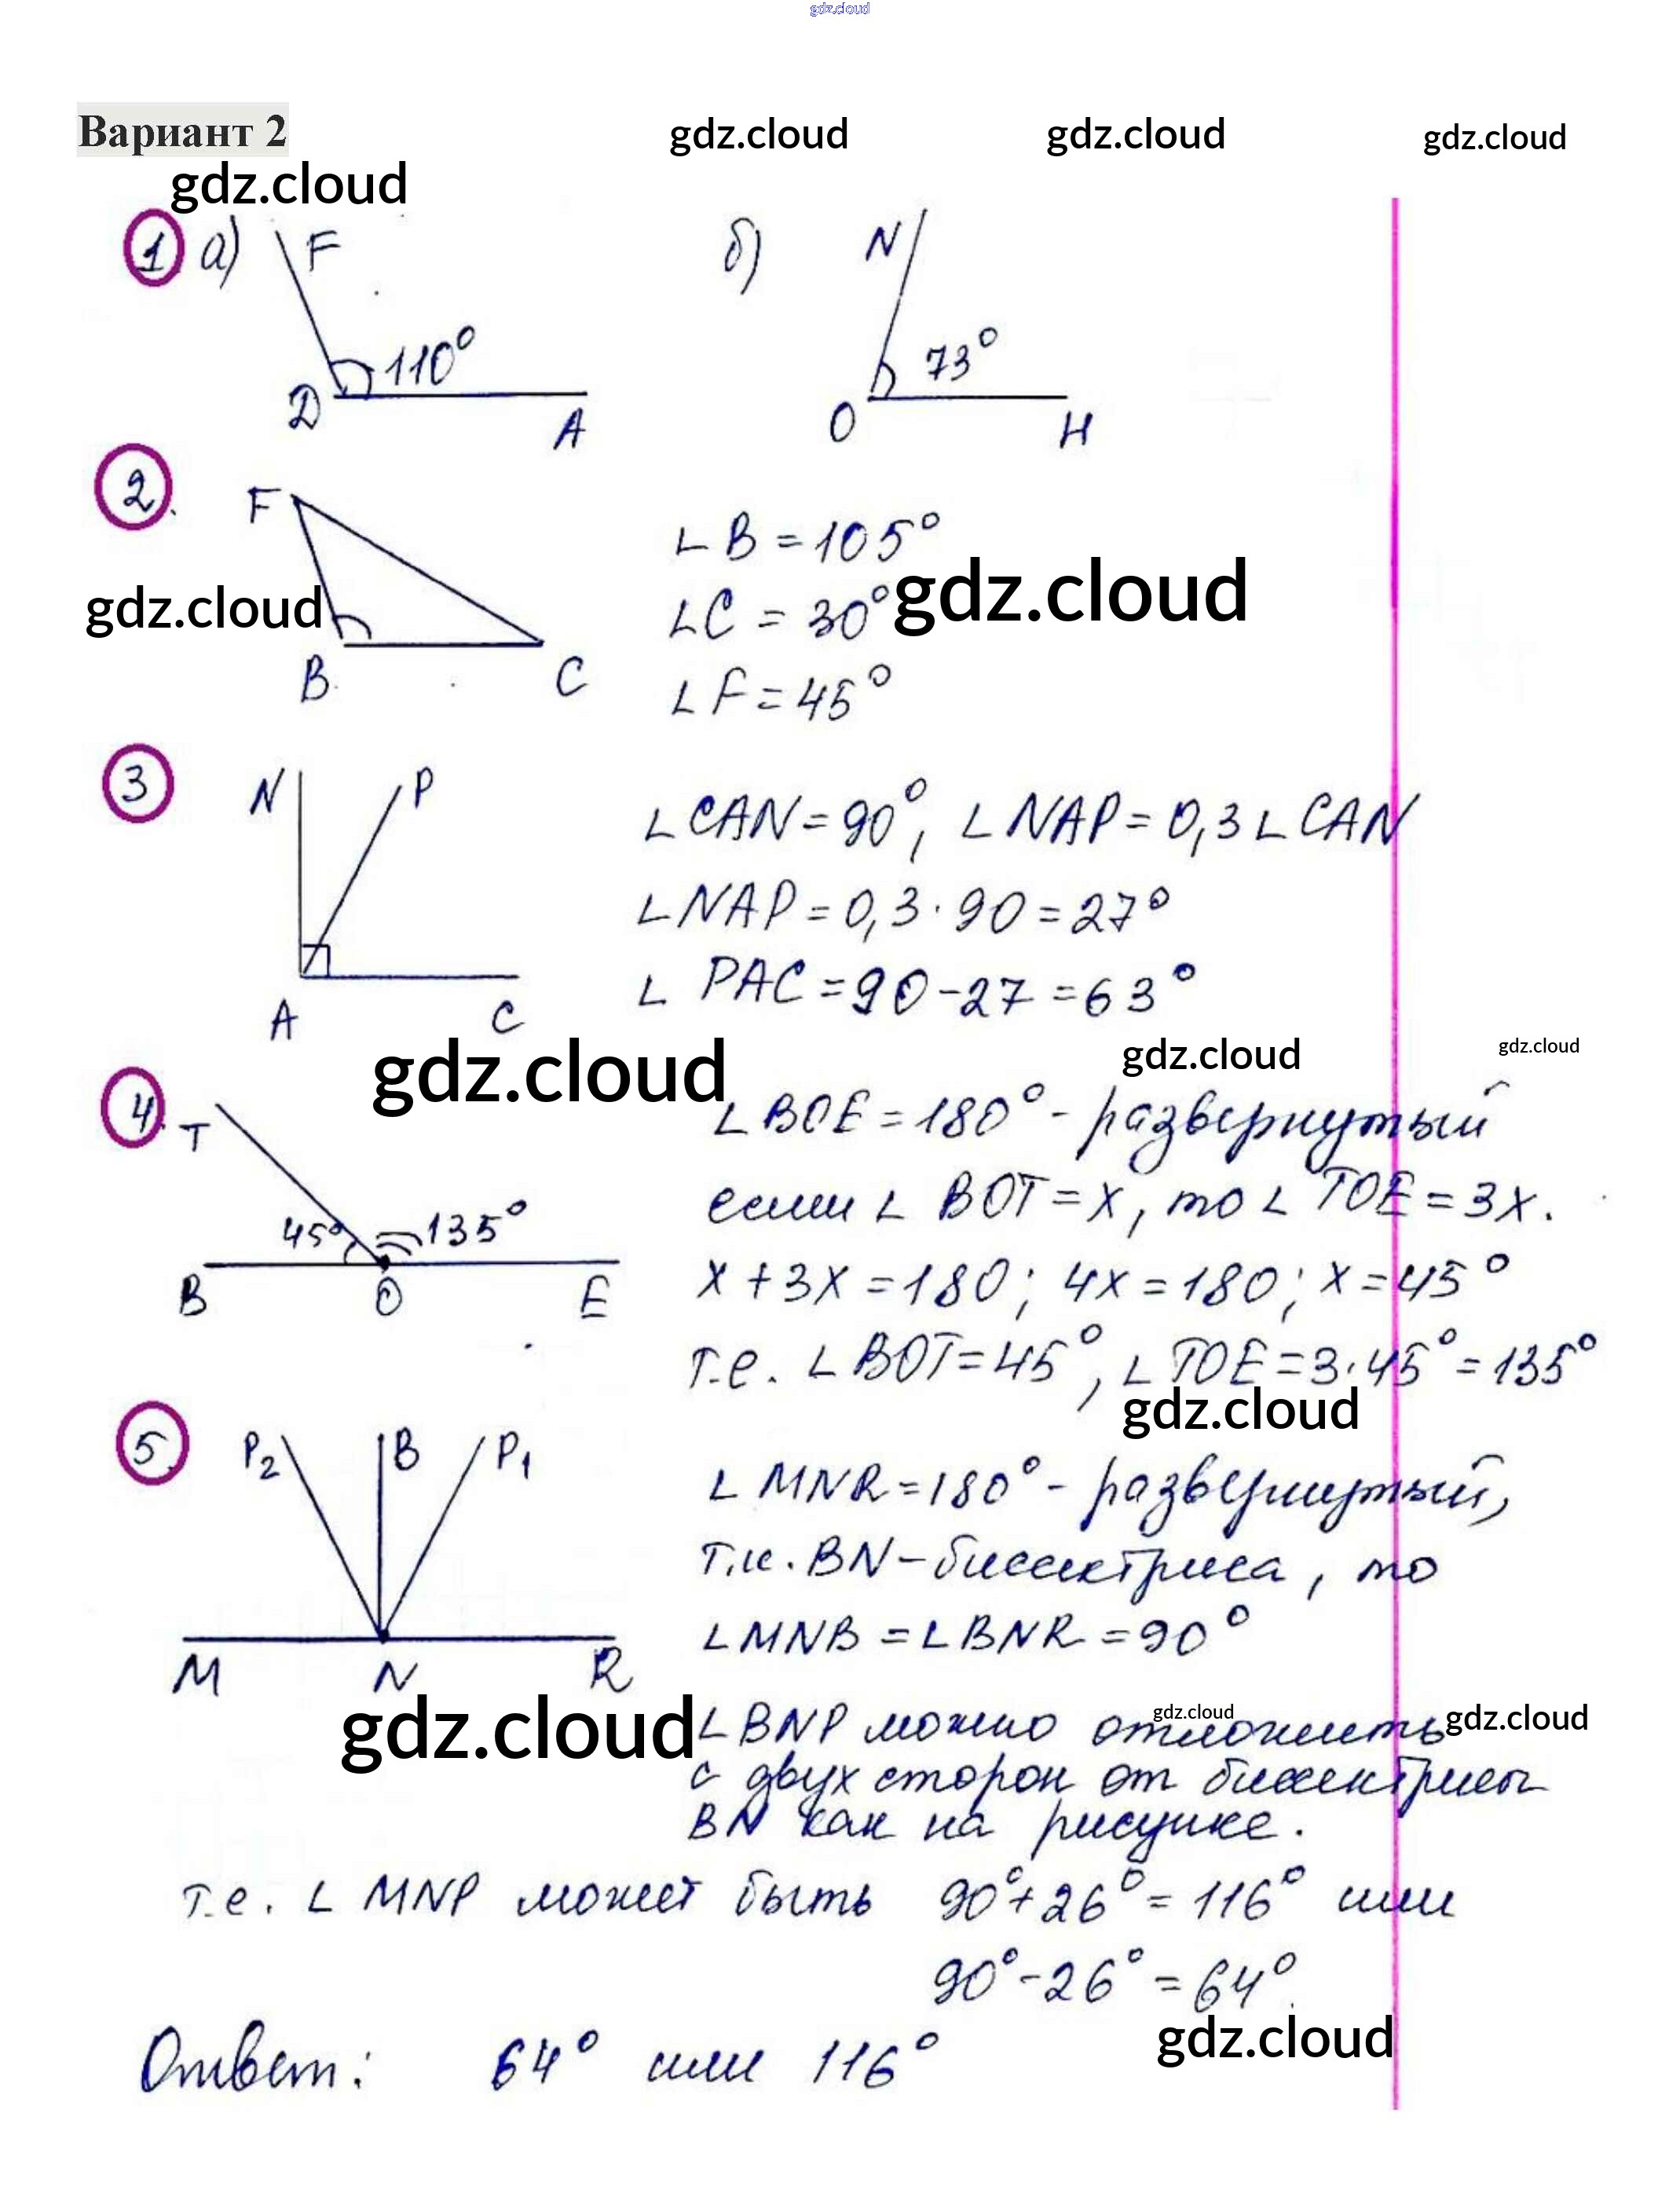 gdz.cloud
Вариант 2
gdz.cloud gdz.cloud gdz.cloud
gdz.cloud
1 а) F 110° D A
б) N 73° O H
2. F B C
∠B = 105°
gdz.cloud
∠C = 30° gdz.cloud
∠F = 45°
3 N P A C
∠CAN = 90°, ∠NAP = 0,3∠CAN
∠NAP = 0,3 · 90 = 27°
∠PAC = 90 - 27 = 63°
gdz.cloud gdz.cloud gdz.cloud
4. T 45° 135° B O E
∠BOE = 180° - развернутый
если ∠BOT = x, то ∠TOE = 3x.
x + 3x = 180; 4x = 180; x = 45°
т.е. ∠BOT = 45°, ∠TOE = 3·45° = 135°
gdz.cloud
5. P2 B P1 M N R
∠MNR = 180° - развернутый,
т.к. BN - биссектриса, то
∠MNB = ∠BNR = 90°
gdz.cloud gdz.cloud gdz.cloud
∠BNP можно отложить
с двух сторон от биссектрисы
BN как на рисунке.
т.е. ∠MNP может быть 90° + 26° = 116° или
90° - 26° = 64°
gdz.cloud
Ответ: 64° или 116°